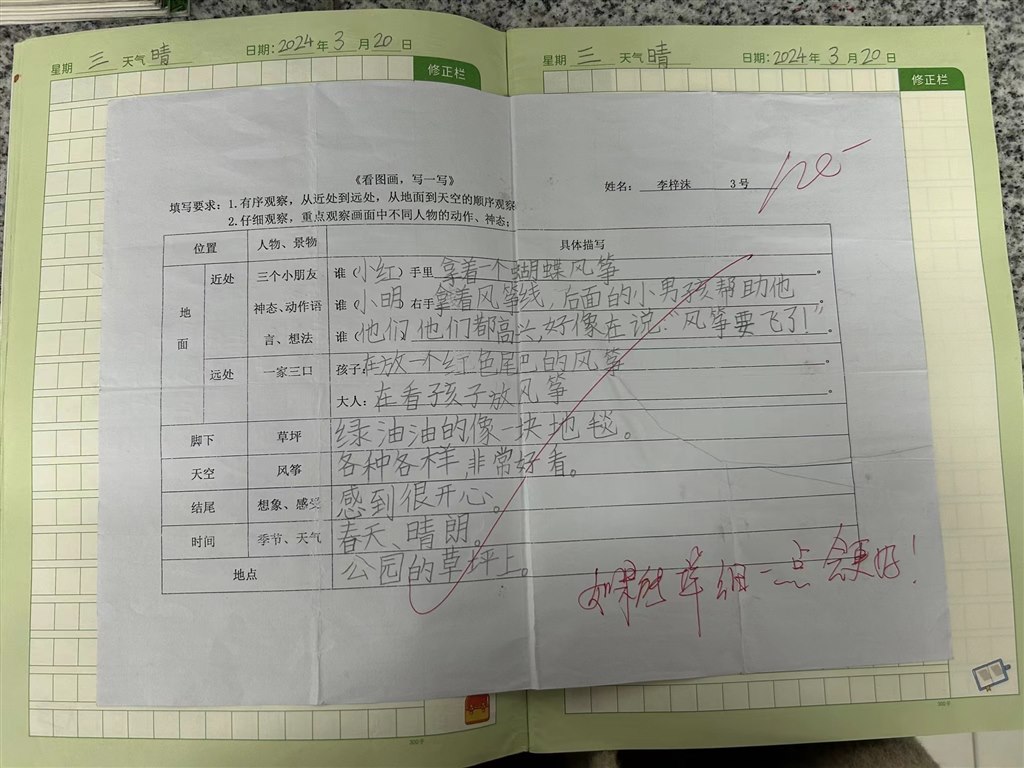 星期 三 天气 晴 日期：2024年3月20日
修正栏
星期 三 天气 晴 日期：2024年3月20日
修正栏
《看图画，写一写》
姓名： 李梓沫 3号
填写要求：1.有序观察，从近处到远处，从地面到天空的顺序观察
2.仔细观察，重点观察画面中不同人物的动作、神态；
位置 人物、景物 具体描写
地面 近处 三个小朋友 神态、动作语言、想法
谁（小红）手里 拿着一个蝴蝶风筝。
谁（小明）右手 拿着风筝线，后面的小男孩帮助他。
谁（他们）他们都高兴，好像在说：“风筝要飞了！”。
远处 一家三口 孩子：在放一个红色尾巴的风筝。
大人：在看孩子放风筝。
脚下 草坪 绿油油的像一块地毯。
天空 风筝 各种各样，非常好看。
结尾 想象、感受 感到很开心。
时间 季节、天气 春天、晴朗。
地点 公园的草坪上。
一点会更好！
300字
300字